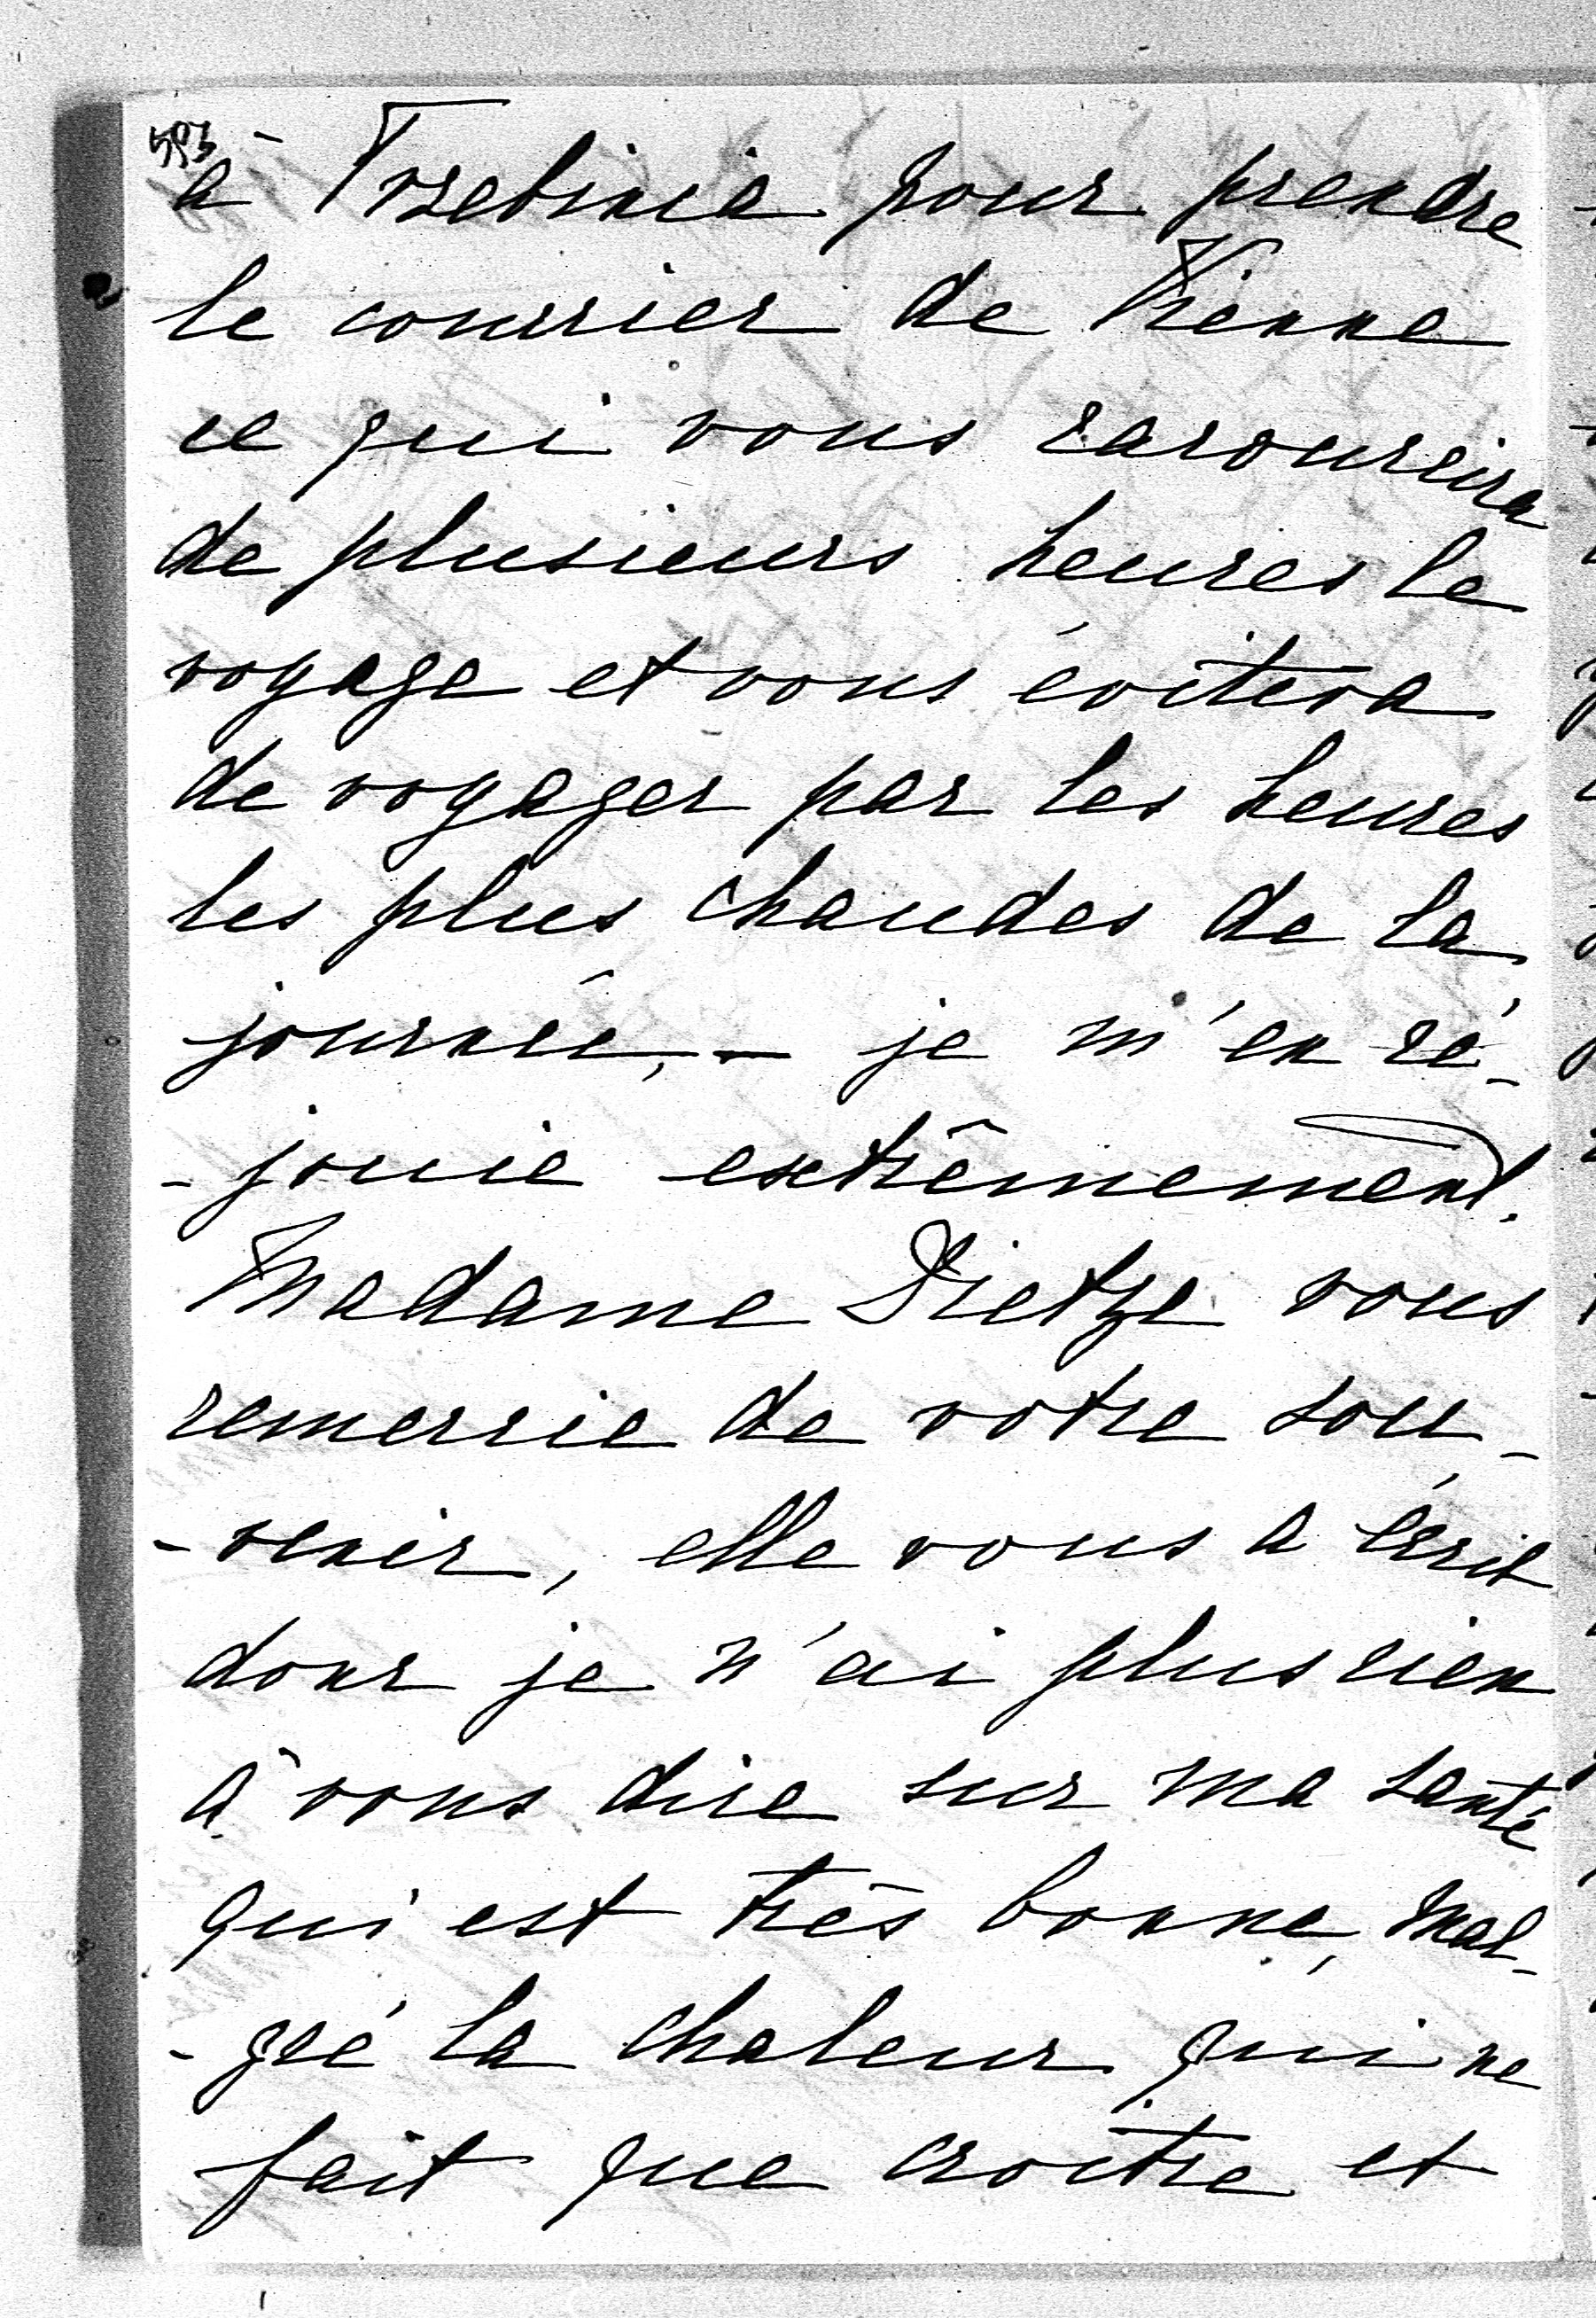 593
à Trzebinia pour prendre
le courrier de Vienne
ce qui vous racourcira
de plusieurs heures le
voyage et vous évitera
de voyager par les heures
les plus chaudes de la
journée, — je m'en ré-
-jouie extrêmement.
Madame Dietze vous
remercie de votre sou-
-venir, elle vous a écrit
donc je n'ai plus rien
à vous dire sur ma santé
qui est très bonne, mal-
-gré la chaleur qui ne
fait que croître et